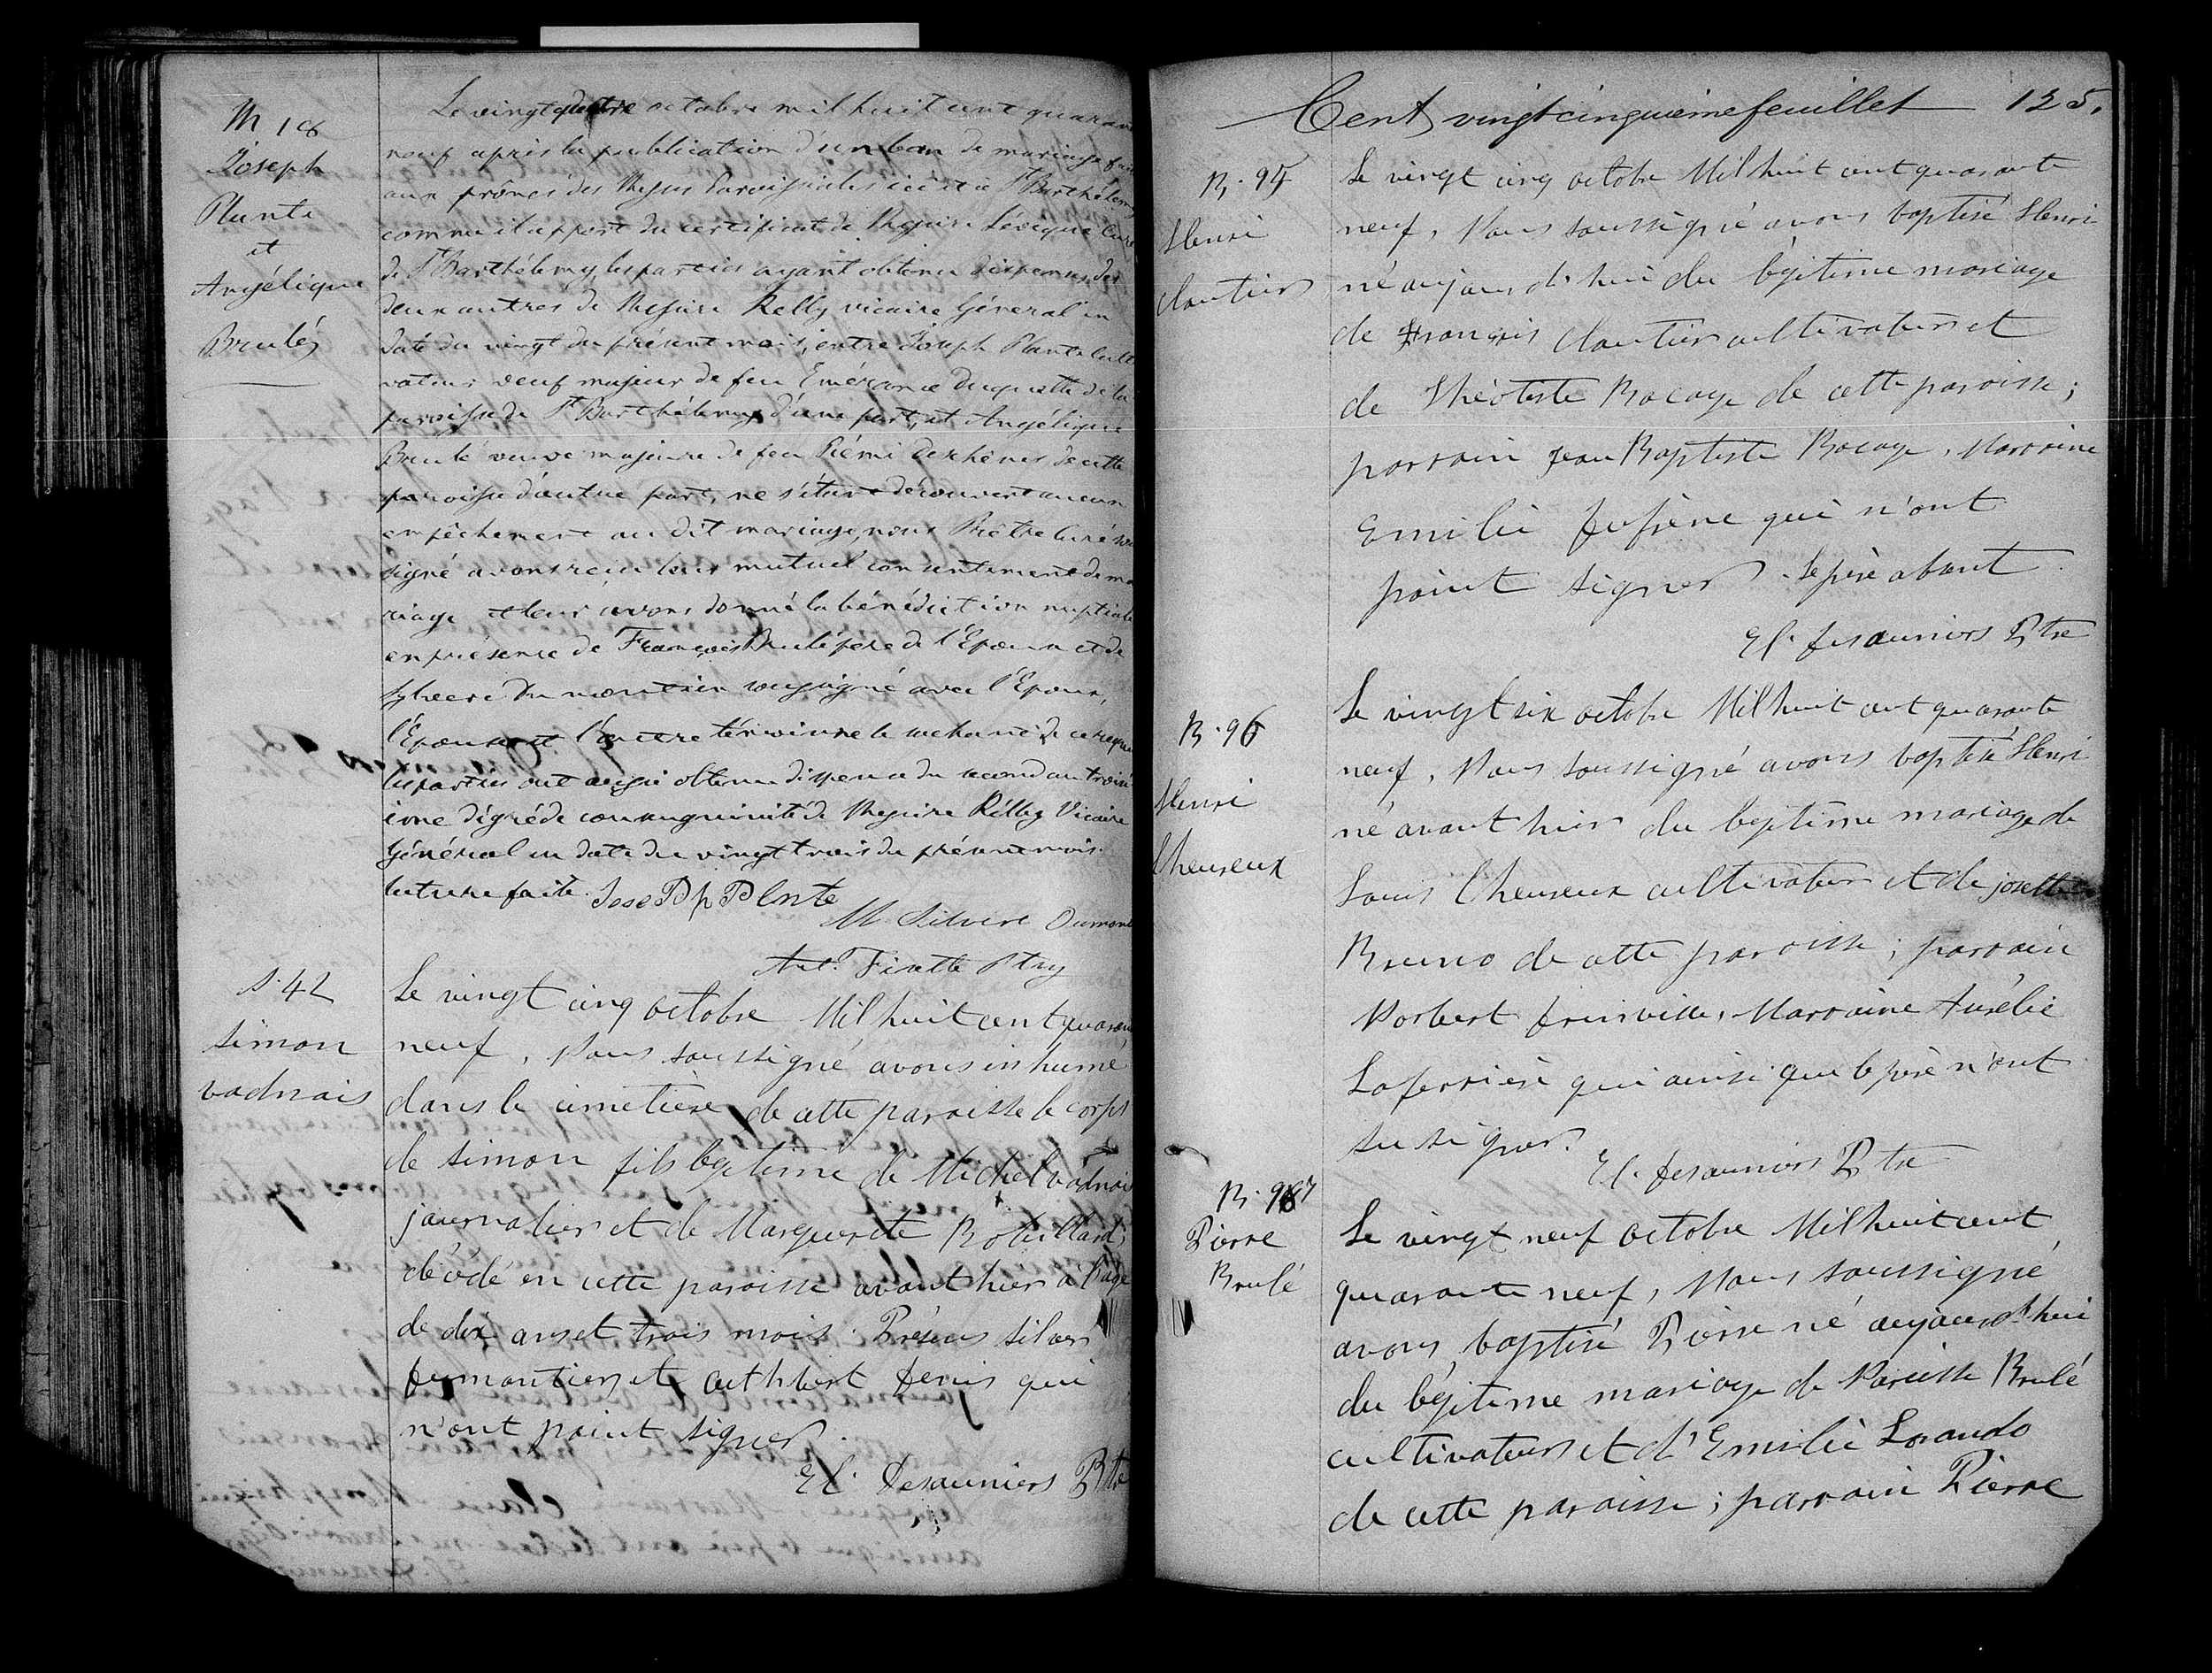 M 18
Joseph
Plante
et
Angélique
Brulé
Le vingt quatre octobre mil huit cent quaran
neuf après la publication d'un ban de mariage
aux prônes des Messes Paroissiales ici et à St Barthélemy
comme il appert du certificat de Messire Lévêque Curé
de St Barthélemy, les parties ayant obtenu dispense des
deux autres de Messire Kelly vicaire Général en
date du vingt du présent mois, entre Joseph Plante culti
vateur veuf majeur de feu Emérance Duquette de la
paroisse de St Barthélemy d'une part, et Angélique
Brulé veuve majeure de feu Rémi Deschênes de cette
paroisse d'autre part, ne s'étant découvert aucun
empêchement au dit mariage, nous Prêtre Curé sous
signé avons reçu leur mutuel consentement de ma
riage et leur avons donné la bénédiction nuptiale
en présence de François Brulé père de l'Epouse et de
Sylvere Dumoutier soussigné avec l'Epoux,
l'Epouse et l'autre témoin ne le sachant de ce requis
les parties ont aussi obtenu dispense du second au trois
ième dégré de consanguinité de Messire Kelly Vicaire
Général en date du vingt trois du présent mois.
lecture faite. JosePh Plnte
M Silvere Dumont
Ant. Fisette Ptre
S. 42
Simon
vadnais
Le vingt cinq octobre Mil huit cent quaran
neuf, Nous soussigné avons inhumé
dans le cimetière de cette paroisse le corps
de simon fils légitime de Michel vadnais
journalier et de Marguerite Robillard,
décédé en cette paroisse avant hier à l'age
de dix ans et trois mois. Présens silver
dumontier et cuthbert denis qui
n'ont point signer.
El. Desauniers Ptre
Cent vingt cinquieme feuillet 125.
B. 95
Henri
cloutier
Le vingt cinq octobre Mil huit cent quarante
neuf, Nous soussigné avons baptisé Henri
né aujourd'hui du légitime mariage
de François cloutier cultivateur et
de Théotiste Bocage de cette paroisse;
parrain jean Baptiste Bocage, Marraine
Emilie dufrène qui n'ont
point signer. Le père absent
El. desauniers Ptre
B. 96
Henri
Lheureux
Le vingt six octobre Mil huit cent quarante
neuf, Nous soussigné avons baptisé Henri
né avant hier du légitime mariage de
Louis Lheureux cultivateur et de josette
Bruno de cette paroisse; parrain
Norbert drinville, Marraine Aurélie
Laferrière qui ainsi que le père n'ont
su signer.
El. desauniers Ptre
B. 97
Pierre
Brulé
Le vingt neuf octobre Mil huit cent
quarante neuf, Nous soussigné
avons baptisé Pierre né aujourd'hui
du légitime mariage de Narcisse Brulé
cultivateur et d'Emilie Lorando
de cette paroisse; parrain Pierre